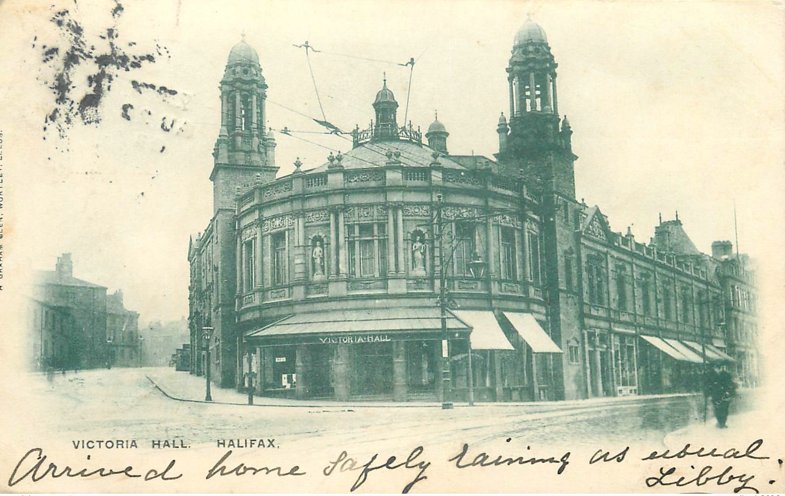 A GRAHAM GLEN, WORTLEY, LEEDS.
VICTORIA HALL
VICTORIA HALL. HALIFAX.
Arrived home safely raining as usual
Libby.